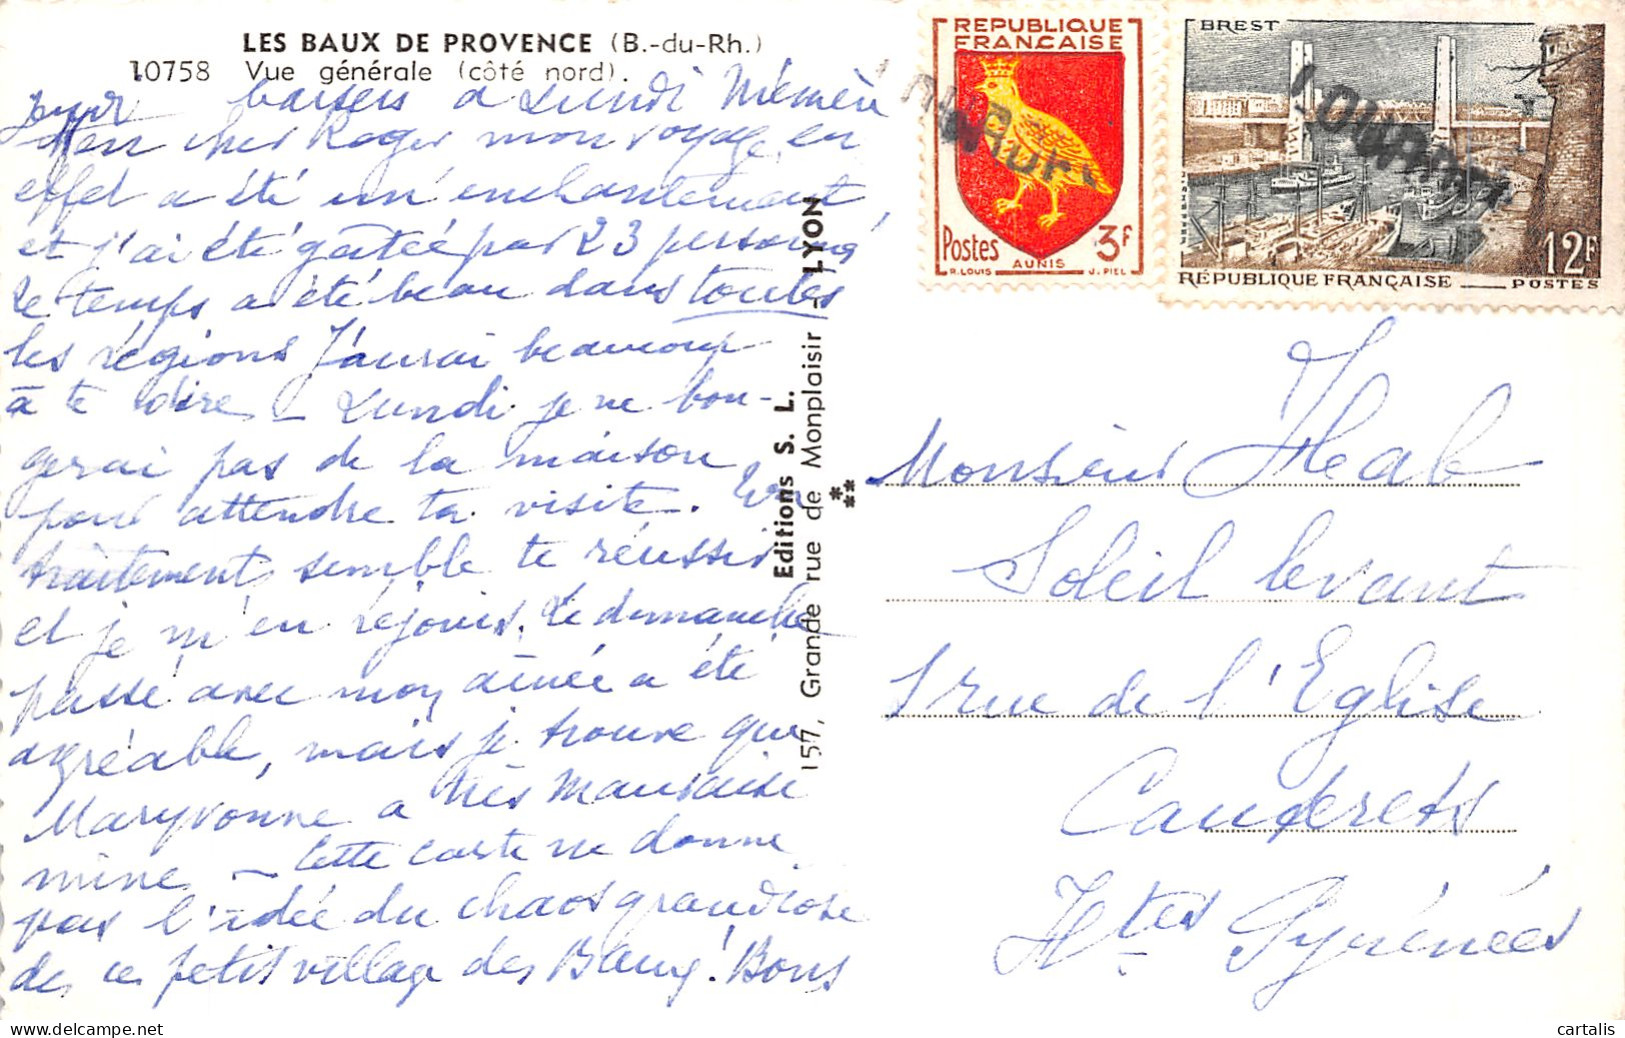 LES BAUX DE PROVENCE (B.-du-Rh.)
10758 Vue générale (côté nord).
baisers à Lundi Mémère
Mon cher Roger mon voyage, en
effet a été un enchantement,
et j'ai été gâtée par 23 personnes
Le temps a été beau dans toutes
les régions J'aurai beaucoup
à te dire – Lundi je ne bou-
gerai pas de la maison
pour attendre ta visite. Ton
traitement semble te réussir
et je m'en réjouis. Le dimanche
passé avec mon aînée a été
agréable, mais je trouve que
Maryvonne a très mauvaise
mine – Cette carte ne donne
pas l'idée du chaos grandiose
de ce petit village des Baux! Bons
Editions S. L. - LYON
157, Grande rue de Monplaisir
REPUBLIQUE
FRANCAISE
Postes 3F
AUNIS
R. LOUIS J. PIEL
BREST
12F
RÉPUBLIQUE FRANÇAISE POSTES
Monsieur Heab
Soleil levant
rue de l'Eglise
Cauterets
Htes Pyrénées
© cartalis